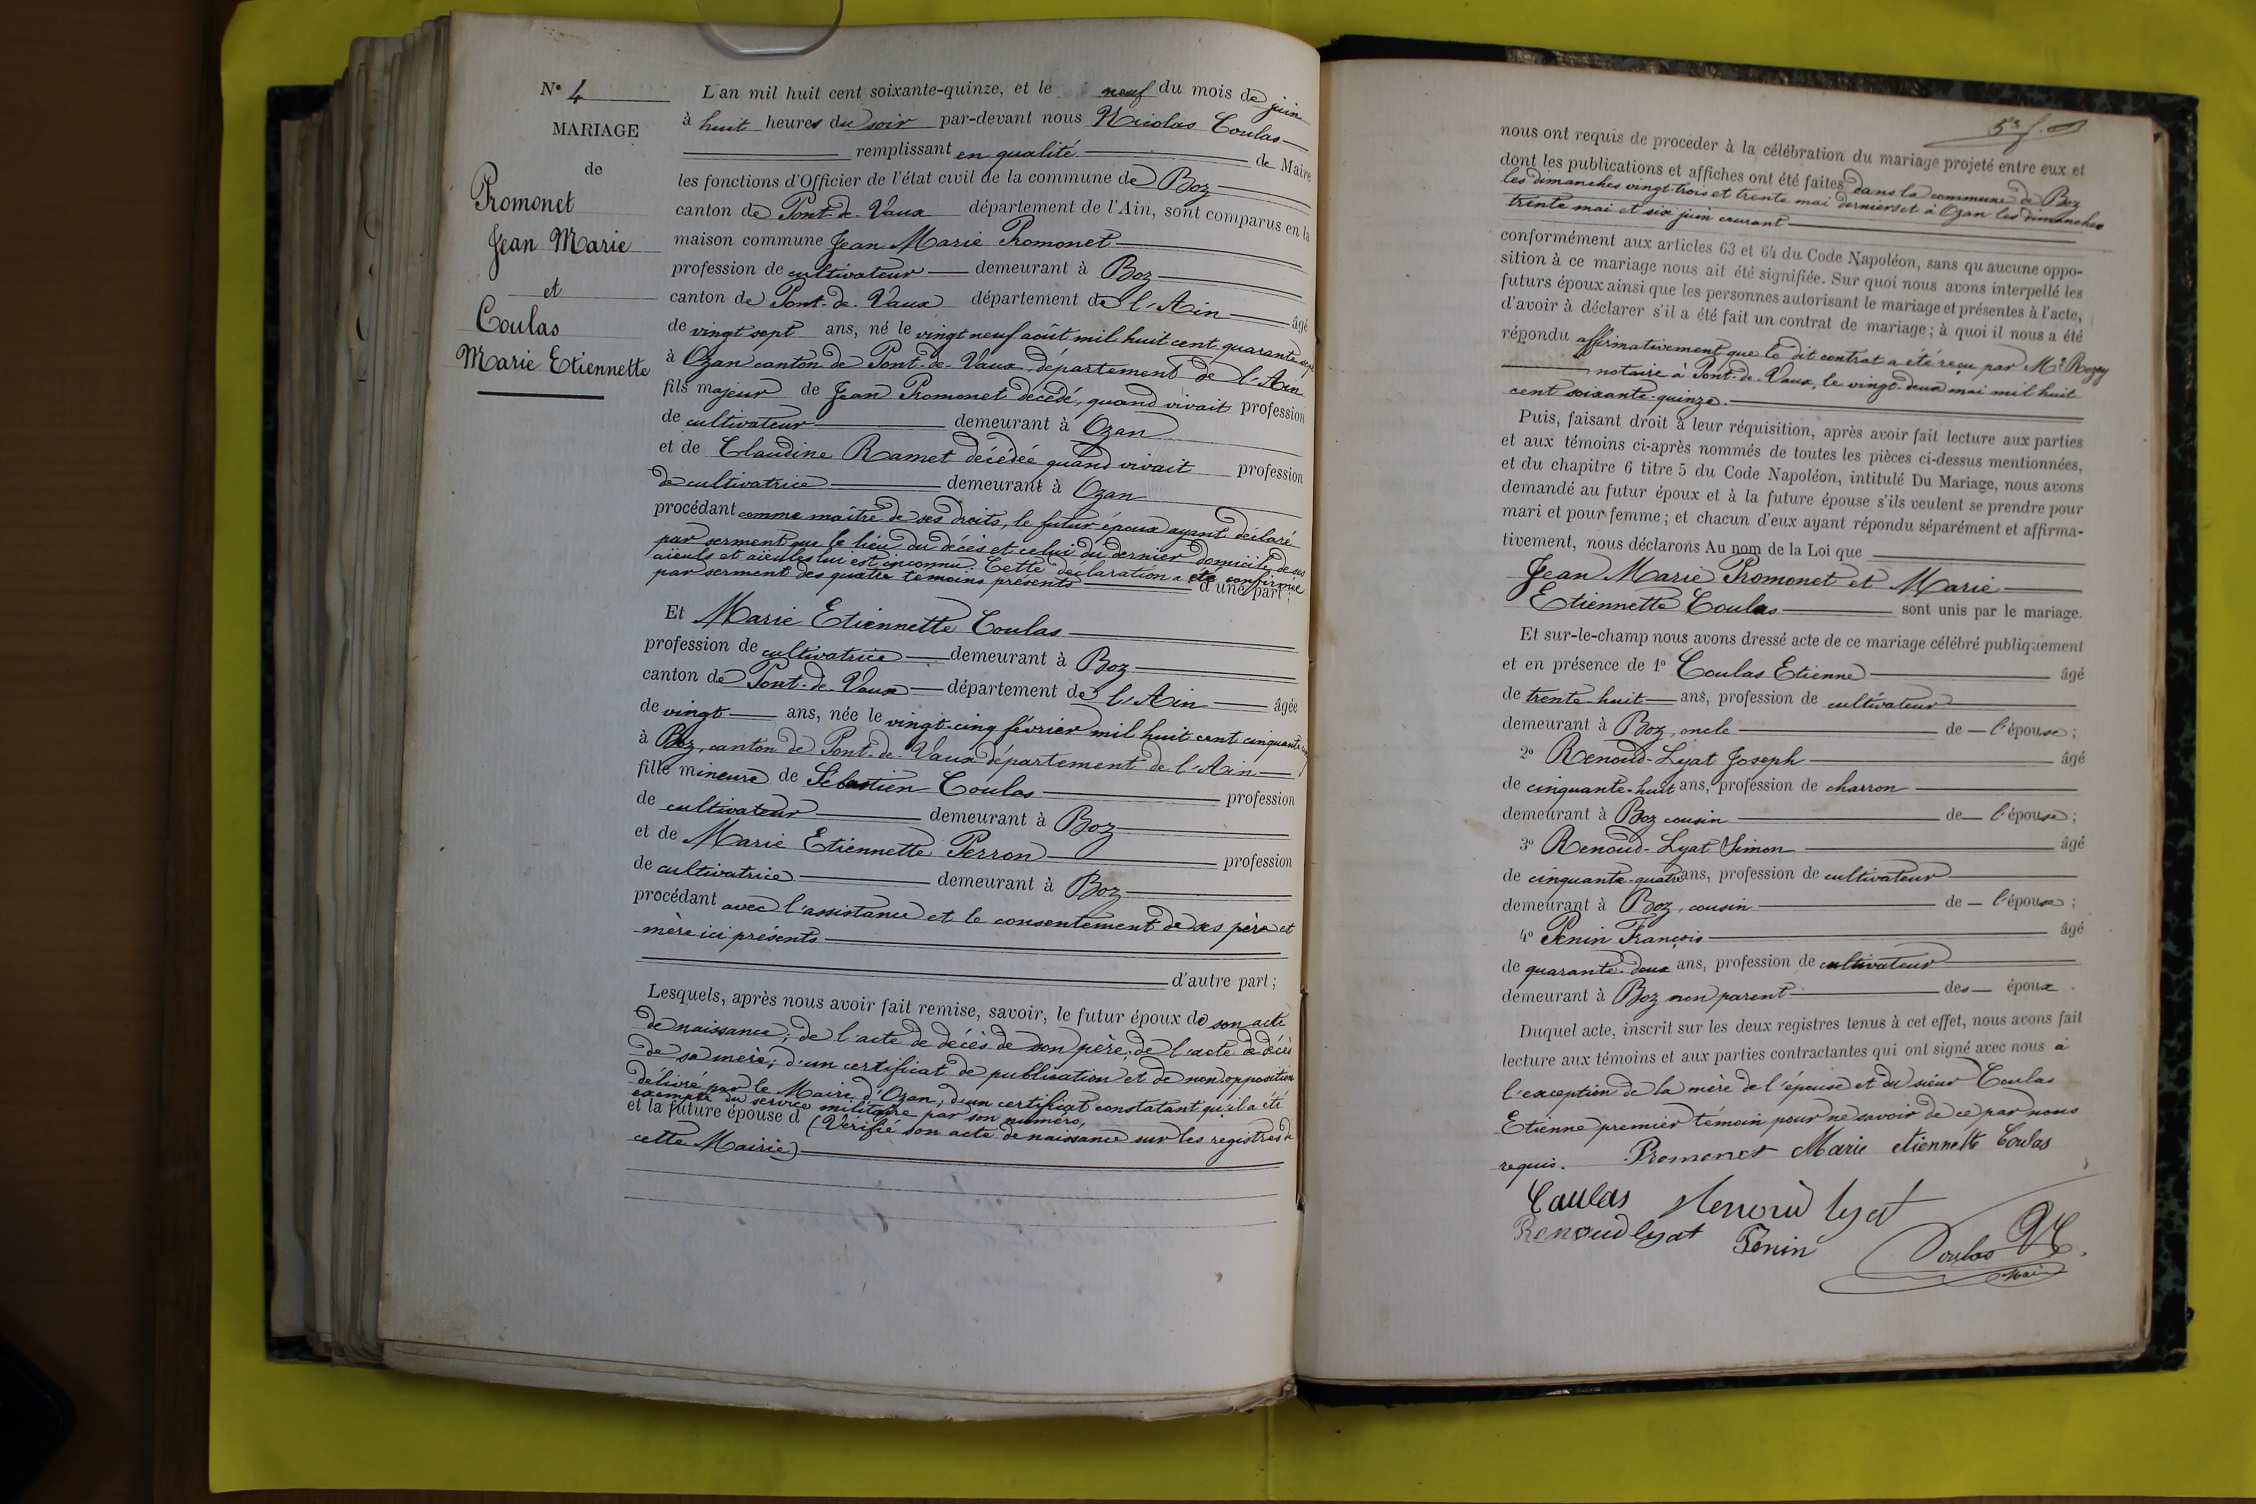 N° 4
MARIAGE
de
Promonet
Jean Marie
et
Coulas
Marie Etiennette
L'an mil huit cent soixante-quinze, et le neuf du mois de juin
à huit heures du soir par-devant nous Nicolas Coulas
remplissant en qualité de Maire
les fonctions d'Officier de l'état civil de la commune de Boz
canton de Pont-de-Vaux département de l'Ain, sont comparus en la
maison commune Jean Marie Promonet
profession de cultivateur demeurant à Boz
canton de Pont-de-Vaux département de l'Ain âgé
de vingt sept ans, né le vingt neuf août mil huit cent quarante sept
à Ozan canton de Pont-de-Vaux département de l'Ain
fils majeur de Jean Promonet décédé, quand vivait profession
de cultivateur demeurant à Ozan
et de Claudine Ramet décédée quand vivait profession
de cultivatrice demeurant à Ozan
procédant comme maître de ses droits, le futur époux ayant déclaré
par serment que le lieu du décès et celui du dernier domicile de ses
aïeuls et aïeules lui est inconnu. Cette déclaration a été confirmée
par serment des quatre témoins présents d'une part;
Et Marie Etiennette Coulas
profession de cultivatrice demeurant à Boz
canton de Pont-de-Vaux département de l'Ain âgée
de vingt ans, née le vingt-cinq février mil huit cent cinquante cinq
à Boz, canton de Pont-de-Vaux département de l'Ain
fille mineure de Sébastien Coulas profession
de cultivateur demeurant à Boz
et de Marie Etiennette Perron profession
de cultivatrice demeurant à Boz
procédant avec l'assistance et le consentement de ses père et
mère ici présents
d'autre part;
Lesquels, après nous avoir fait remise, savoir, le futur époux de son acte
de naissance; de l'acte de décès de son père; de l'acte de décès
de sa mère; d'un certificat de publication et de non opposition
délivré par le Maire d'Ozan; d'un certificat constatant qu'il a été
exempté du service militaire par son numéro,
et la future épouse d (Vérifié son acte de naissance sur les registres de
cette Mairie)
nous ont requis de procéder à la célébration du mariage projeté entre eux et
dont les publications et affiches ont été faites dans la commune de Boz
les dimanches vingt-trois et trente mai derniers et à Ozan les dimanches
trente mai et six juin courant
conformément aux articles 63 et 64 du Code Napoléon, sans qu'aucune oppo-
sition à ce mariage nous ait été signifiée. Sur quoi nous avons interpellé les
futurs époux ainsi que les personnes autorisant le mariage et présentes à l'acte,
d'avoir à déclarer s'il a été fait un contrat de mariage; à quoi il nous a été
répondu affirmativement que le dit contrat a été reçu par Me
notaire à Pont-de-Vaux, le vingt-deux mai mil huit
cent soixante-quinze.
Puis, faisant droit à leur réquisition, après avoir fait lecture aux parties
et aux témoins ci-après nommés de toutes les pièces ci-dessus mentionnées,
et du chapitre 6 titre 5 du Code Napoléon, intitulé Du Mariage, nous avons
demandé au futur époux et à la future épouse s'ils veulent se prendre pour
mari et pour femme; et chacun d'eux ayant répondu séparément et affirma-
tivement, nous déclarons Au nom de la Loi que
Jean Marie Promonet et Marie
Etiennette Coulas sont unis par le mariage.
Et sur-le-champ nous avons dressé acte de ce mariage célébré publiquement
et en présence de 1° Coulas Etienne âgé
de trente-huit ans, profession de cultivateur
demeurant à Boz, oncle de l'épouse;
2° Renoud-Lyat Joseph âgé
de cinquante-huit ans, profession de charron
demeurant à Boz cousin de l'épouse;
3° Renoud-Lyat Simon âgé
de cinquante-quatre ans, profession de cultivateur
demeurant à Boz, cousin de l'épouse;
4° Penin François âgé
de quarante-deux ans, profession de cultivateur
demeurant à Boz non parent des époux.
Duquel acte, inscrit sur les deux registres tenus à cet effet, nous avons fait
lecture aux témoins et aux parties contractantes qui ont signé avec nous à
l'exception de la mère de l'épouse et du sieur Coulas
Etienne premier témoin pour ne savoir de ce par nous
requis. Promonet Marie etiennette Coulas
Coulas Renoud lyat
Renoud lyat Penin Coulas
Maire